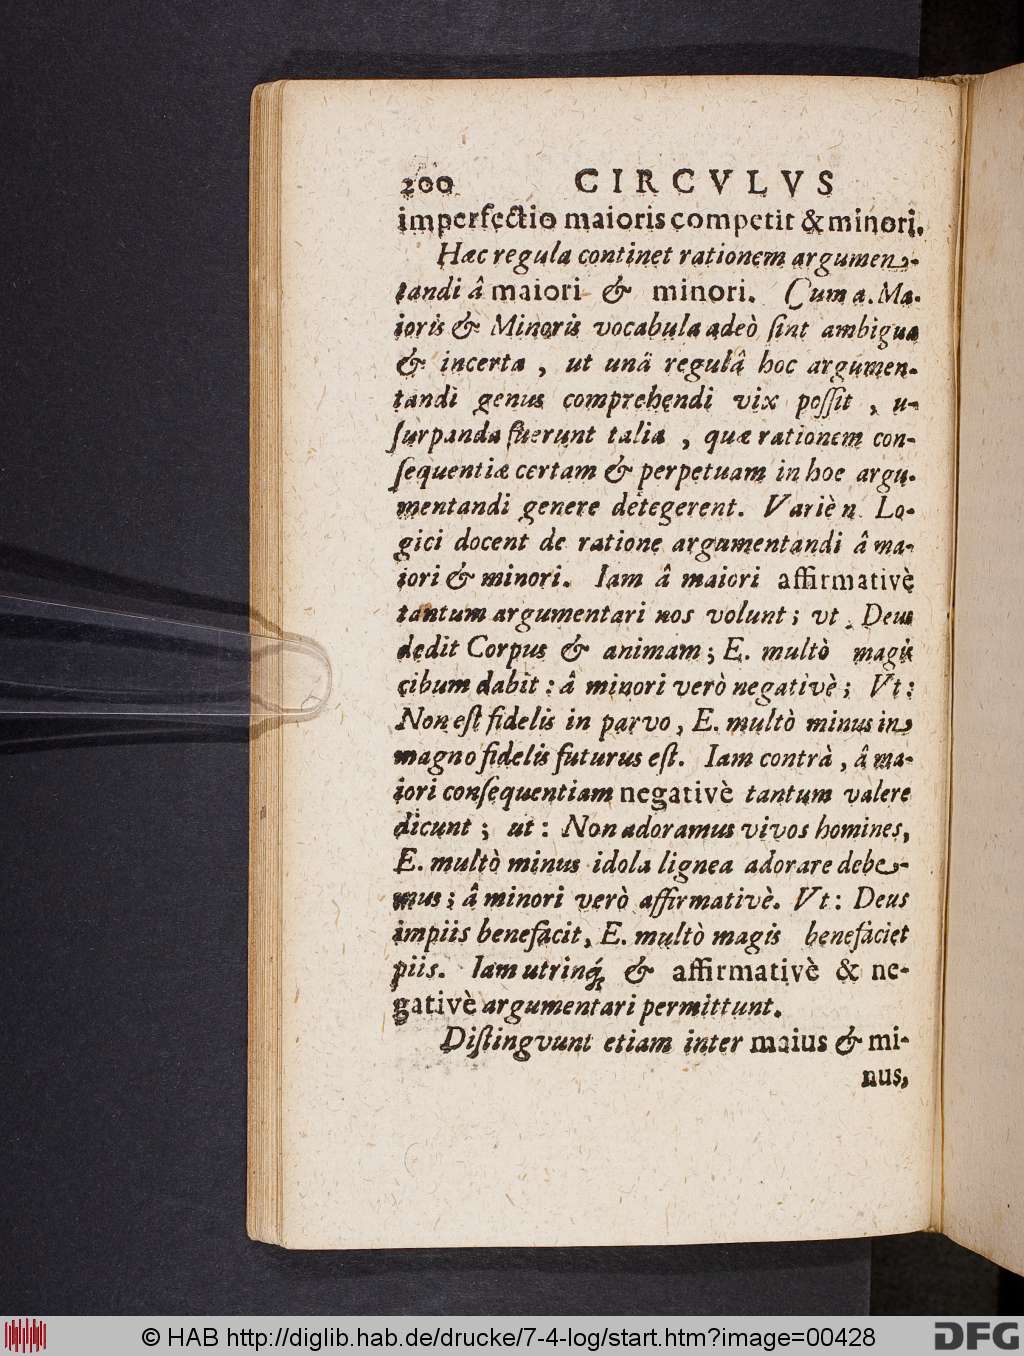 200 CIRCVLVS
imperfectio maioris competit & minori.
Hæc regula continet rationem argumen-
tandi â maiori & minori. Cum a. Ma-
ioris & Minoris vocabula adeò ſint ambigua
& incerta, ut unâ regulâ hoc argumen-
tandi genus comprehendi vix poſſit, u-
ſurpanda fuerunt talia, quæ rationem con-
ſequentiæ certam & perpetuam in hoc argu-
mentandi genere detegerent. Variè n. Lo-
gici docent de ratione argumentandi â ma-
iori & minori. Iam â maiori affirmativè
tantum argumentari nos volunt; vt. Deus
dedit Corpus & animam; E. multò magis
cibum dabit: â minori verò negativè; Vt:
Non eſt fidelis in parvo, E. multò minus in
magno fidelis futurus eſt. Iam contrà, â ma-
iori conſequentiam negativè tantum valere
dicunt; ut: Non adoramus vivos homines,
E. multò minus idola lignea adorare debe-
mus; â minori verò affirmativè. Vt: Deus
impiis benefacit, E. multò magis benefaciet
piis. Iam utrinq́; & affirmativè & ne-
gativè argumentari permittunt.
Diſtingvunt etiam inter maius & mi-
nus,
© HAB http://diglib.hab.de/drucke/7-4-log/start.htm?image=00428
DFG